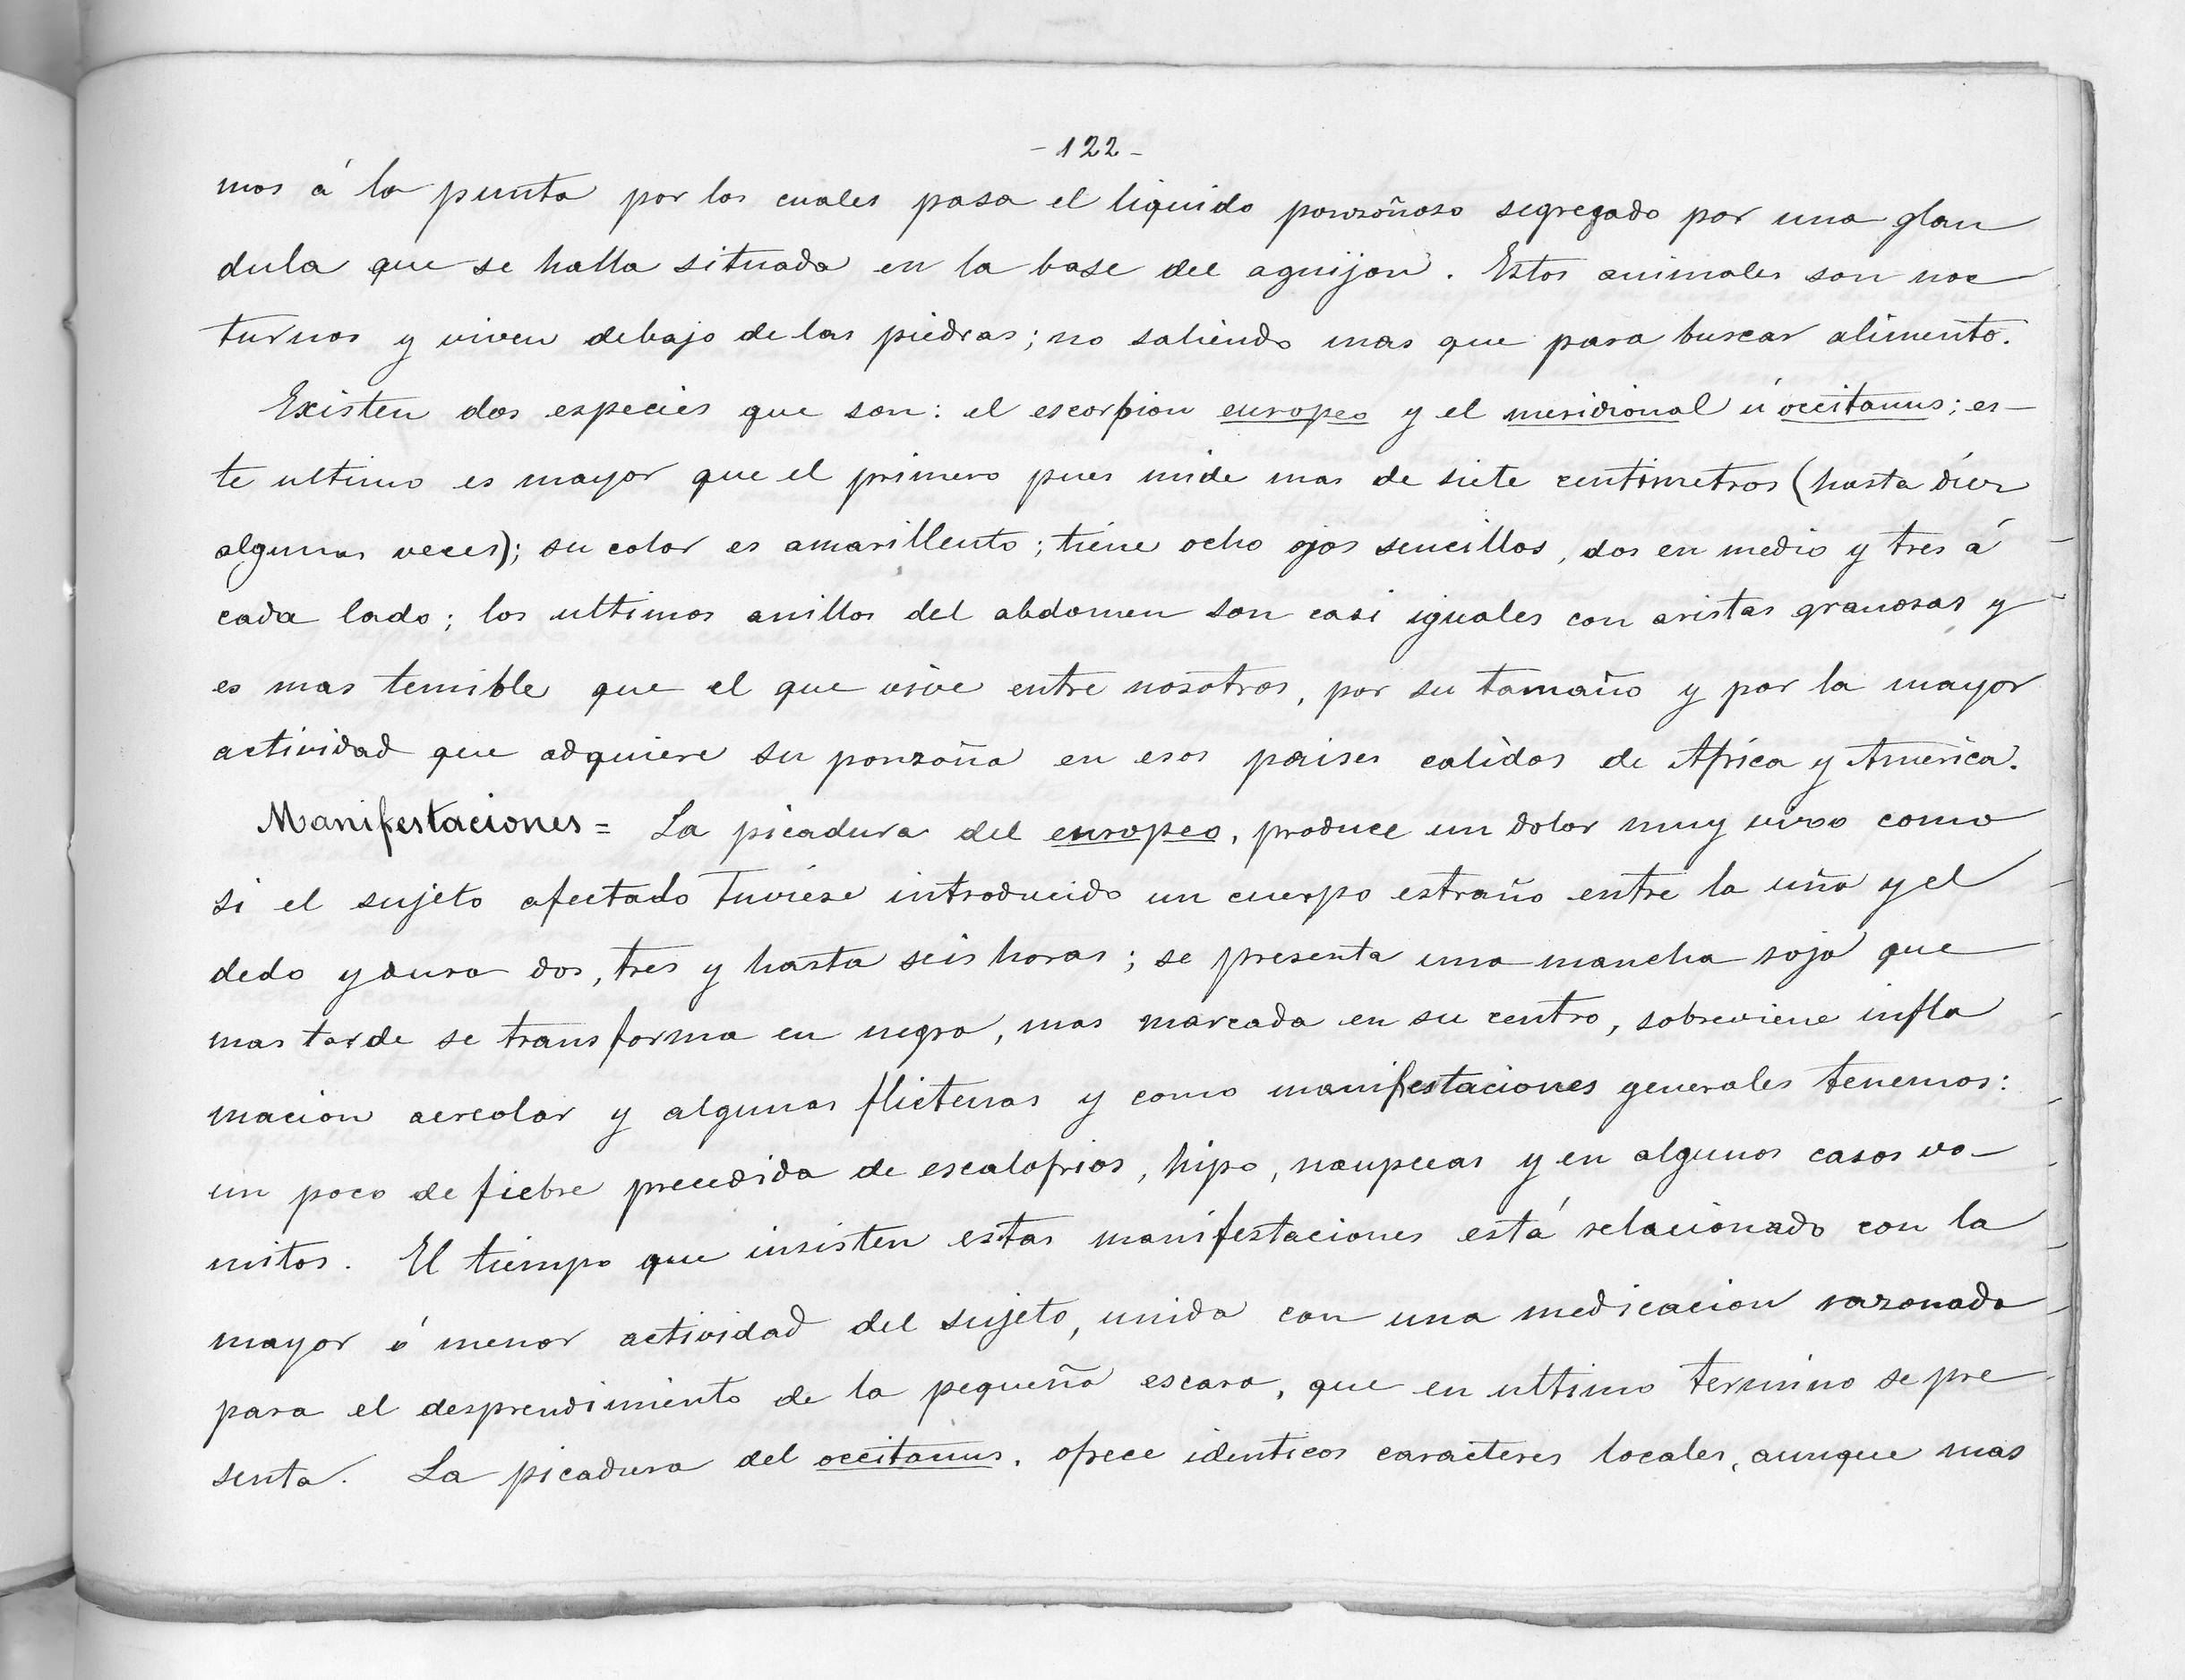 - 122 -
mos á la punta por los cuales pasa el liquido ponzoñoso segregado por una glan
dula que se halla situada en la base del aguijon. Estos animales son noc
turnos y viven debajo de las piedras; no saliendo mas que para buscar alimento.
Existen dos especies que son: el escorpion europeo y el meridional ú occitanus; es-
te ultimo es mayor que el primero pues mide mas de siete centimetros (hasta diez
algunas veces); su color es amarillento; tiene ocho ojos sencillos, dos en medio y tres á
cada lado; los ultimos anillos del abdomen son casi iguales con aristas granosas y
es mas temible que el que vive entre nosotros, por su tamaño y por la mayor
actividad que adquiere su ponzoña en esos paises calidos de Africa y America.
Manifestaciones = La picadura del europeo, produce un dolor muy vivo como
si el sujeto afectado tuviese introducido un cuerpo estraño entre la uña y el
dedo y dura dos, tres y hasta seis horas; se presenta una mancha roja que
mas tarde se transforma en negra, mas marcada en su centro, sobreviene infla
macion aereolar y algunas flictenas y como manifestaciones generales tenemos:
un poco de fiebre precedida de escalofrios, hipo, y en algunos casos vo-
mitos. El tiempo que insisten estas manifestaciones está relacionado con la
mayor ó menor actividad del sujeto, unida con una medicacion razonada
para el desprendimiento de la pequeña escara, que en ultimo termino se pre
senta. La picadura del occitanus, ofrece identicos caracteres locales, aunque mas